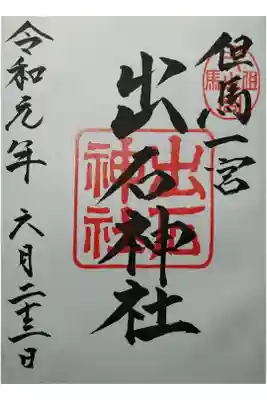 但馬一宮
出石神社
令和元年 六月二十三日
出石神社